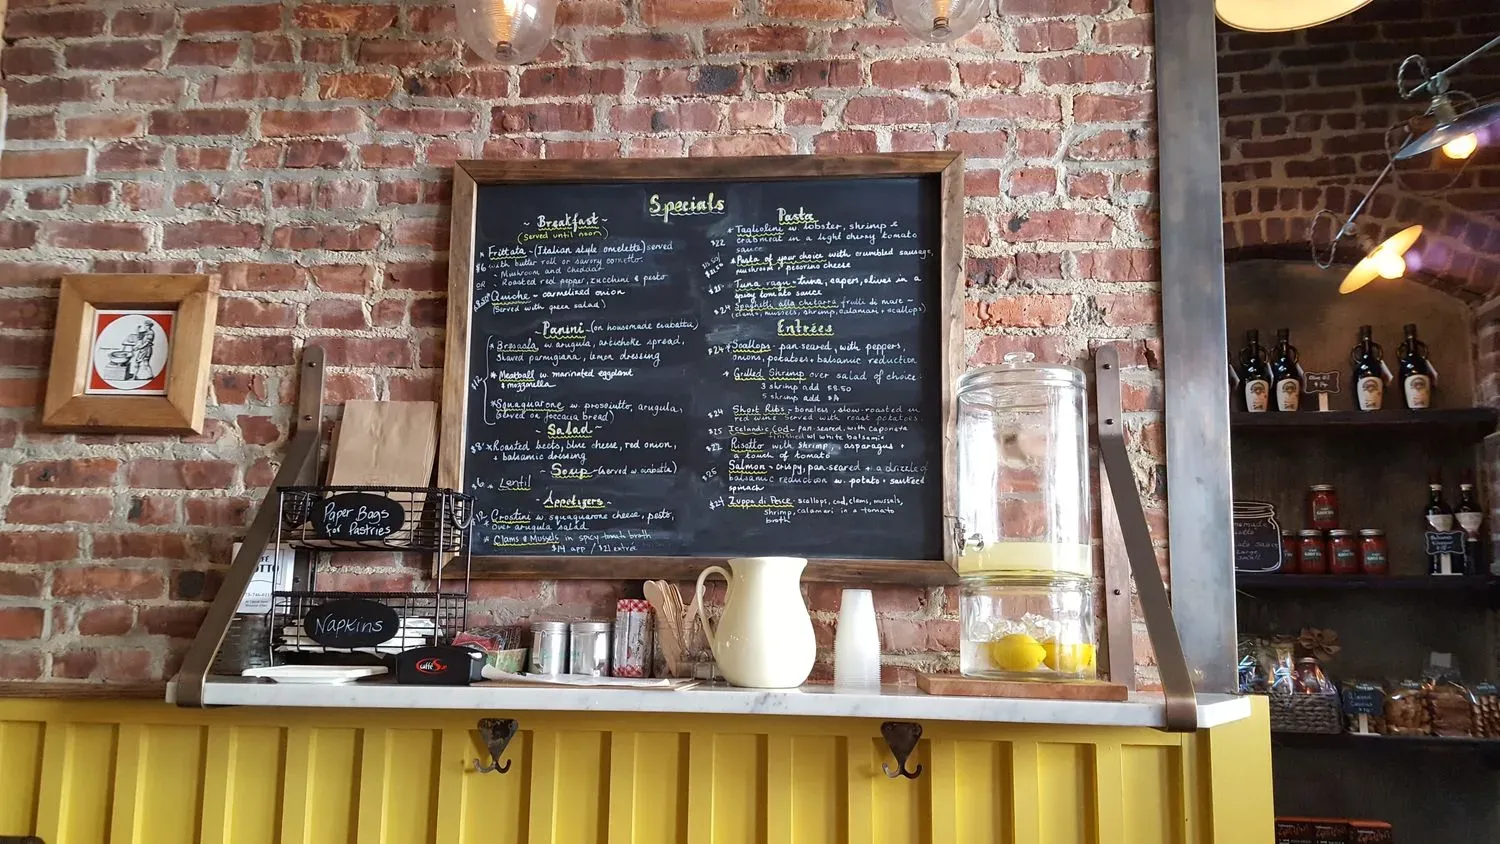 Specials
~ Breakfast ~
(Served until noon)
* Frittata - (Italian style omelette) served
$6 with butter roll or savory cornetto.
- Mushroom and Cheddar
OR - Roasted red pepper, zucchini & pesto
Quiche - carmelized onion
(Served with green salad)
- Panini - (on housemade ciabatta)
* Bresaola w. arugula, artichoke spread,
shaved parmigiana, lemon dressing
$12
* Meatball w. marinated eggplant
& mozzarella
* Squaquarone w. prosciutto, arugula,
(served on foccacia bread)
~ Salad ~
$8 * Roasted beets, blue cheese, red onion,
+ balsamic dressing
~ Soup - (served w. ciabatta)
$6 * Lentil
- Appetizers -
$12 Crostini w. squaquarone cheese, pesto,
over arugula salad
* Clams & Mussels in spicy tomato broth
$14 app / $21 entree
Pasta
* Tagliolini w lobster, shrimp &
$22 crabmeat in a light cherry tomato
sauce
* Pasta of your choice with crumbled sausage,
mushroom + pecorino cheese
Tuna ragu - tuna, caper, olives in a
spicy tomato sauce
$24 Spaghetti alla chitarra frutti di mare -
(clams, mussels, shrimp, calamari + scallops)
Entrées
$24 * Scallops - pan-seared, with peppers,
onions, potatoes + balsamic reduction
* Grilled Shrimp over salad of choice:
3 shrimp add $8.50
5 shrimp add $14
$24 Short Ribs - boneless, slow-roasted in
red wine served with roast potatoes.
$25 Icelandic Cod - pan-seared, with caponata
finished w/ white balsamic
$22 Risotto with shrimp, asparagus +
a touch of tomato
$25 Salmon - crispy, pan-seared + a drizzle of
balsamic reduction w. potato + sauteed
spinach
$24 Zuppa di Pesce - scallops, cod, clams, mussels,
shrimp, calamari in a tomato
broth
Paper Bags
for Pastries
Napkins
Caffè